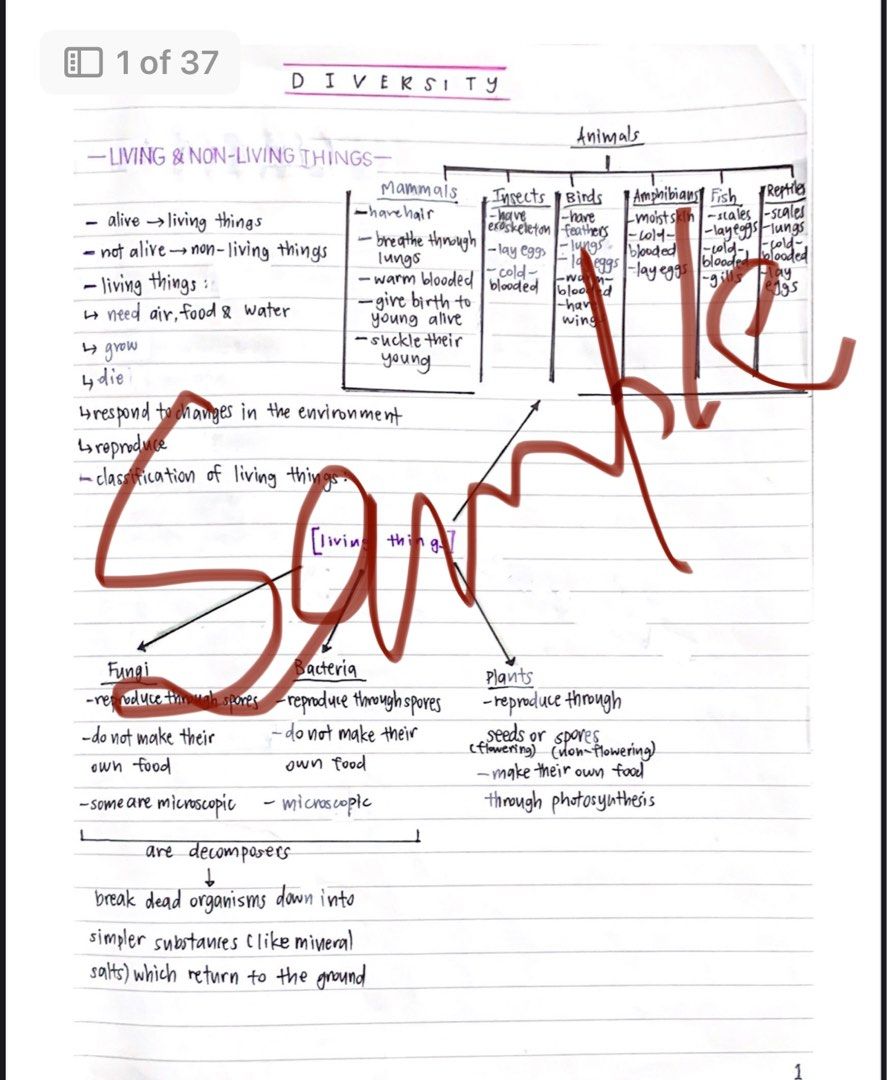 1 of 37
DIVERSITY
Animals
—LIVING & NON-LIVING THINGS—
- alive → living things
- not alive → non-living things
- living things :
↳ need air, food & water
↳ grow
↳ die
↳ respond to changes in the environment
↳ reproduce
- classification of living things:
Mammals
- have hair
- breathe through
lungs
- warm blooded
- give birth to
young alive
- suckle their
young
Insects
- have
exoskeleton
- lay eggs
- cold-
blooded
Birds
- have
feathers
- lungs
- lay eggs
- warm-
blooded
- have
wings
Amphibians
- moist skin
- cold-
blooded
- lay eggs
Fish
- scales
- lay eggs
- cold-
blooded
- gills
Reptiles
- scales
- lungs
- cold-
blooded
- lay
eggs
[living things]
Fungi
- reproduce through spores
- do not make their
own food
- some are microscopic
Bacteria
- reproduce through spores
- do not make their
own food
- microscopic
Plants
- reproduce through
seeds or spores
(flowering) (non-flowering)
- make their own food
through photosynthesis
are decomposers
↓
break dead organisms down into
simpler substances (like mineral
salts) which return to the ground
Sample
1